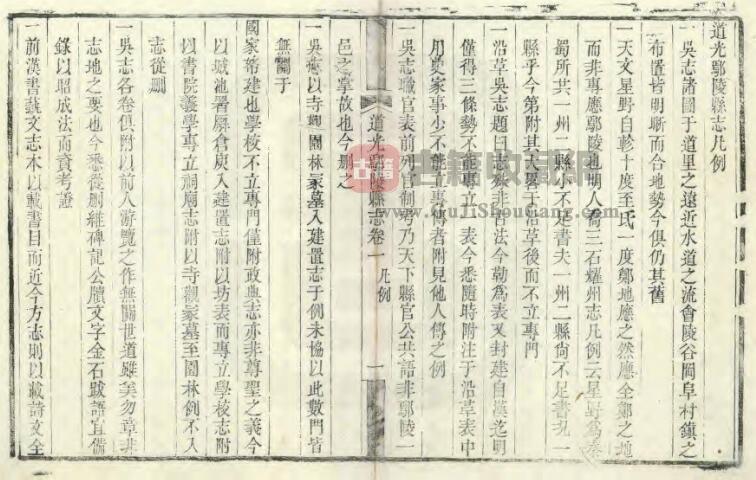 道光鄢陵縣志凡例
一吳志諸圖于道里之遠近水道之流會陵谷岡阜村鎮之
布置皆明晰而合地勢今俱仍其舊
一天文星野自軫十度至氐一度鄭地應之然應全鄭之地
而非專應鄢陵也明人喬三石耀州志凡例云星野為秦
蜀所共一州二縣小不足書夫一州二縣尚不足書况一
縣乎今第附其大畧于沿革後而不立專門
一沿革吳志題曰志殊非古法今勒為表又封建自漢迄明
僅得三條勢不能專立一表今悉隨時附注于沿革表中
用史家事少不能立專傳者附見他人傳之例
一吳志職官表前列官制考乃天下縣官公共語非鄢陵一
邑之掌故也今刪之
道光鄢陵縣志卷一 凡例 一
一吳志以寺觀園林冢墓入建置志于例未協以此數門皆
無關于
國家蒂建也學校不立專門僅附政典志亦非尊聖之義今
以城池署廨倉庾入建置志附以坊表而專立學校志附
以書院義學專立祠廟志附以寺觀冢墓至園林例不入
志從刪
一吳志各卷俱附以前人游覽之作無關世道雖矣勿章非
志地之要也今悉從刪雜碑記公牘文字金石跋語宜備
錄以昭成法而資考證
一前漢書藝文志本以載書目而近今方志則以載詩文全
古籍 古籍收藏网
www.GuJiShouCang.com